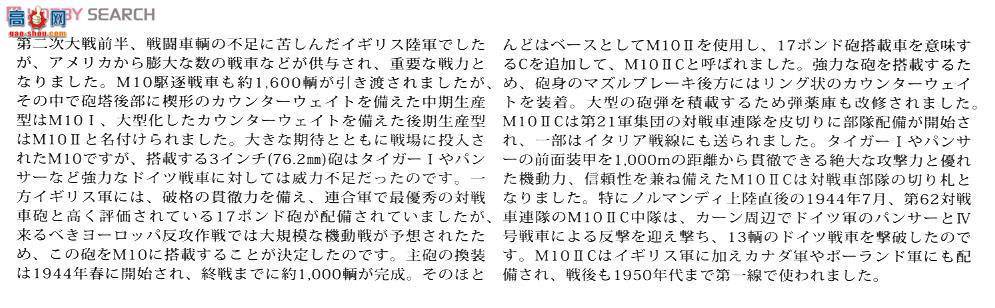 HOBBY SEARCH
高高网
gao-shou.com
第二次大戦前半、戦闘車輌の不足に苦しんだイギリス陸軍でした
が、アメリカから膨大な数の戦車などが供与され、重要な戦力と
なりました。M10駆逐戦車も約1,600輌が引き渡されましたが、
その中で砲塔後部に楔形のカウンターウェイトを備えた中期生産
型はM10Ⅰ、大型化したカウンターウェイトを備えた後期生産型
はM10Ⅱと名付けられました。大きな期待とともに戦場に投入さ
れたM10ですが、搭載する3インチ(76.2㎜)砲はタイガーⅠやパン
サーなど強力なドイツ戦車に対しては威力不足だったのです。一
方イギリス軍には、破格の貫徹力を備え、連合軍で最優秀の対戦
車砲と高く評価されている17ポンド砲が配備されていましたが、
来るべきヨーロッパ反攻作戦では大規模な機動戦が予想されたた
め、この砲をM10に搭載することが決定したのです。主砲の換装
は1944年春に開始され、終戦までに約1,000輌が完成。そのほと
んどはベースとしてM10Ⅱを使用し、17ポンド砲搭載車を意味す
るCを追加して、M10ⅡCと呼ばれました。強力な砲を搭載するた
め、砲身のマズルブレーキ後方にはリング状のカウンターウェイ
トを装着。大型の砲弾を積載するため弾薬庫も改修されました。
M10ⅡCは第21軍集団の対戦車連隊を皮切りに部隊配備が開始さ
れ、一部はイタリア戦線にも送られました。タイガーⅠやパンサ
ーの前面装甲を1,000mの距離から貫徹できる絶大な攻撃力と優れ
た機動力、信頼性を兼ね備えたM10ⅡCは対戦車部隊の切り札と
なりました。特にノルマンディ上陸直後の1944年7月、第62対戦
車連隊のM10ⅡC中隊は、カーン周辺でドイツ軍のパンサーとⅣ
号戦車による反撃を迎え撃ち、13輌のドイツ戦車を撃破したので
す。M10ⅡCはイギリス軍に加えカナダ軍やポーランド軍にも配
備され、戦後も1950年代まで第一線で使われました。